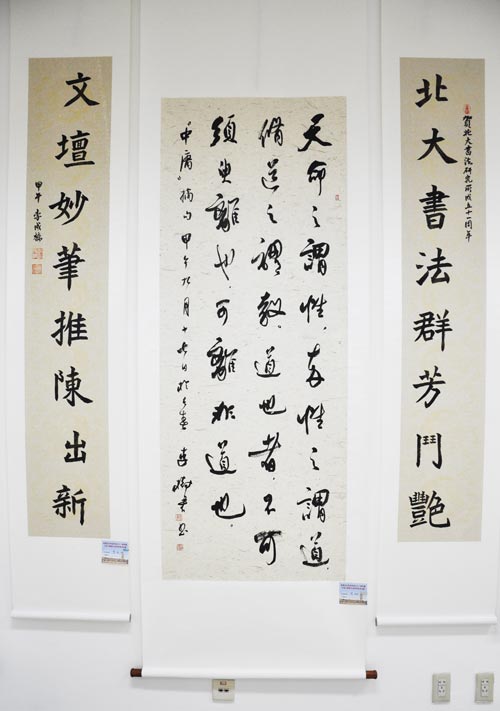 賀北大書法研究所成立十一周年
北大書法群芳鬥艷
天命之謂性，率性之謂道，
脩道之謂教。道也者，不可
須臾離也，可離非道也。
中庸 摘句 甲午九月十
文壇妙筆推陳出新
甲午 李成